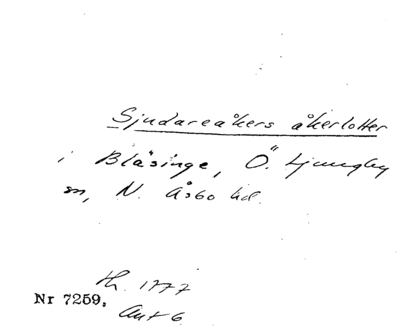 Sjudareåkers åkerlotter
i Blåsinge, Ö. Ljungby
sn, N. Åsbo hd.
th. 1777
Nr 7259,
Ant 6